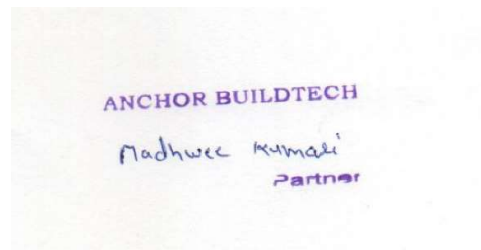 ANCHOR BUILDTECH
Madhwee Kumari
Partner